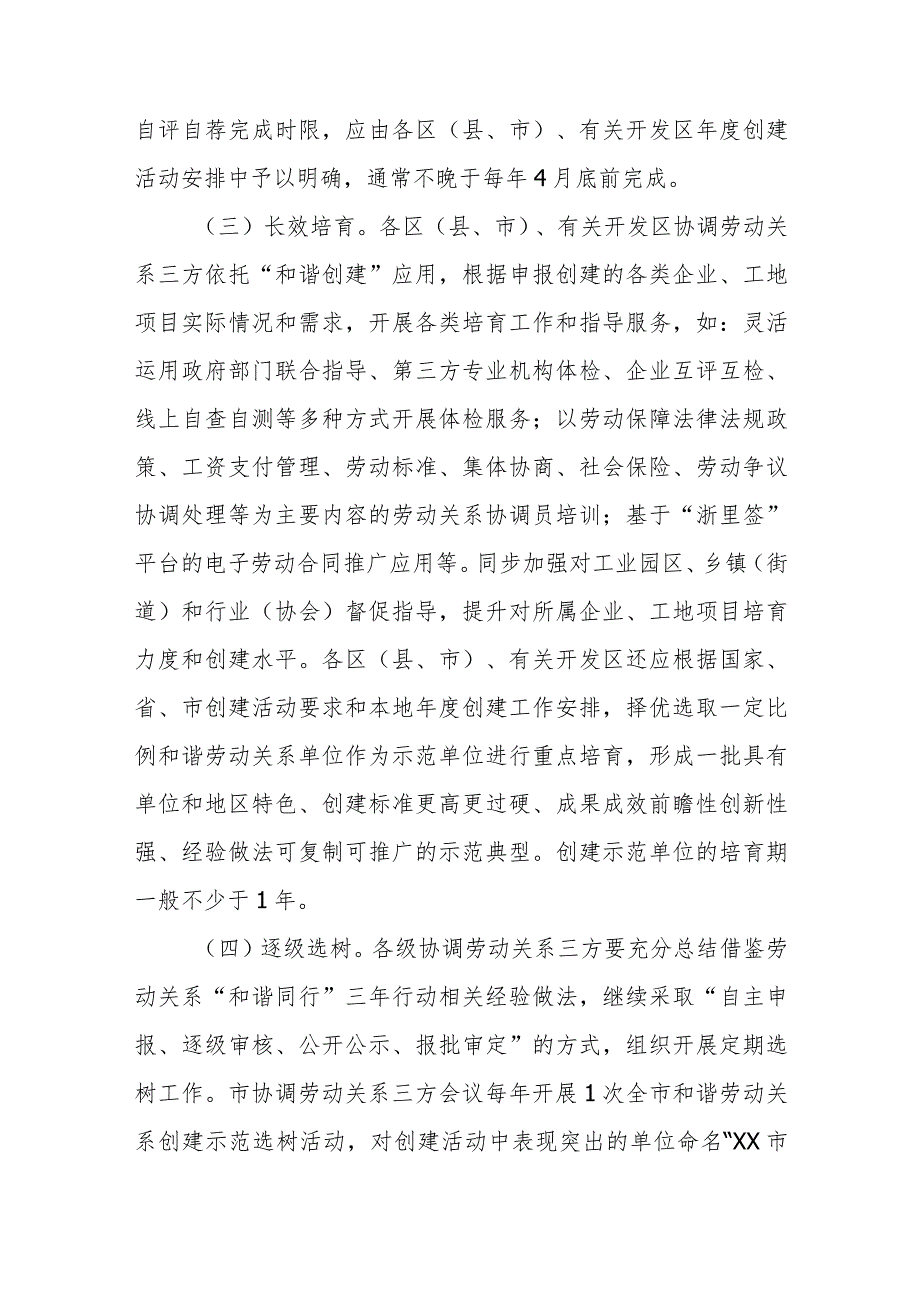 自评自荐完成时限，应由各区（县、市）、有关开发区年度创建
活动安排中予以明确，通常不晚于每年4月底前完成。
（三）长效培育。各区（县、市）、有关开发区协调劳动关
系三方依托“和谐创建”应用，根据申报创建的各类企业、工地
项目实际情况和需求，开展各类培育工作和指导服务，如：灵活
运用政府部门联合指导、第三方专业机构体检、企业互评互检、
线上自查自测等多种方式开展体检服务；以劳动保障法律法规政
策、工资支付管理、劳动标准、集体协商、社会保险、劳动争议
协调处理等为主要内容的劳动关系协调员培训；基于“浙里签”
平台的电子劳动合同推广应用等。同步加强对工业园区、乡镇（街
道）和行业（协会）督促指导，提升对所属企业、工地项目培育
力度和创建水平。各区（县、市）、有关开发区还应根据国家、
省、市创建活动要求和本地年度创建工作安排，择优选取一定比
例和谐劳动关系单位作为示范单位进行重点培育，形成一批具有
单位和地区特色、创建标准更高更过硬、成果成效前瞻性创新性
强、经验做法可复制可推广的示范典型。创建示范单位的培育期
一般不少于1年。
（四）逐级选树。各级协调劳动关系三方要充分总结借鉴劳
动关系“和谐同行”三年行动相关经验做法，继续采取“自主申
报、逐级审核、公开公示、报批审定”的方式，组织开展定期选
树工作。市协调劳动关系三方会议每年开展1次全市和谐劳动关
系创建示范选树活动，对创建活动中表现突出的单位命名“XX市